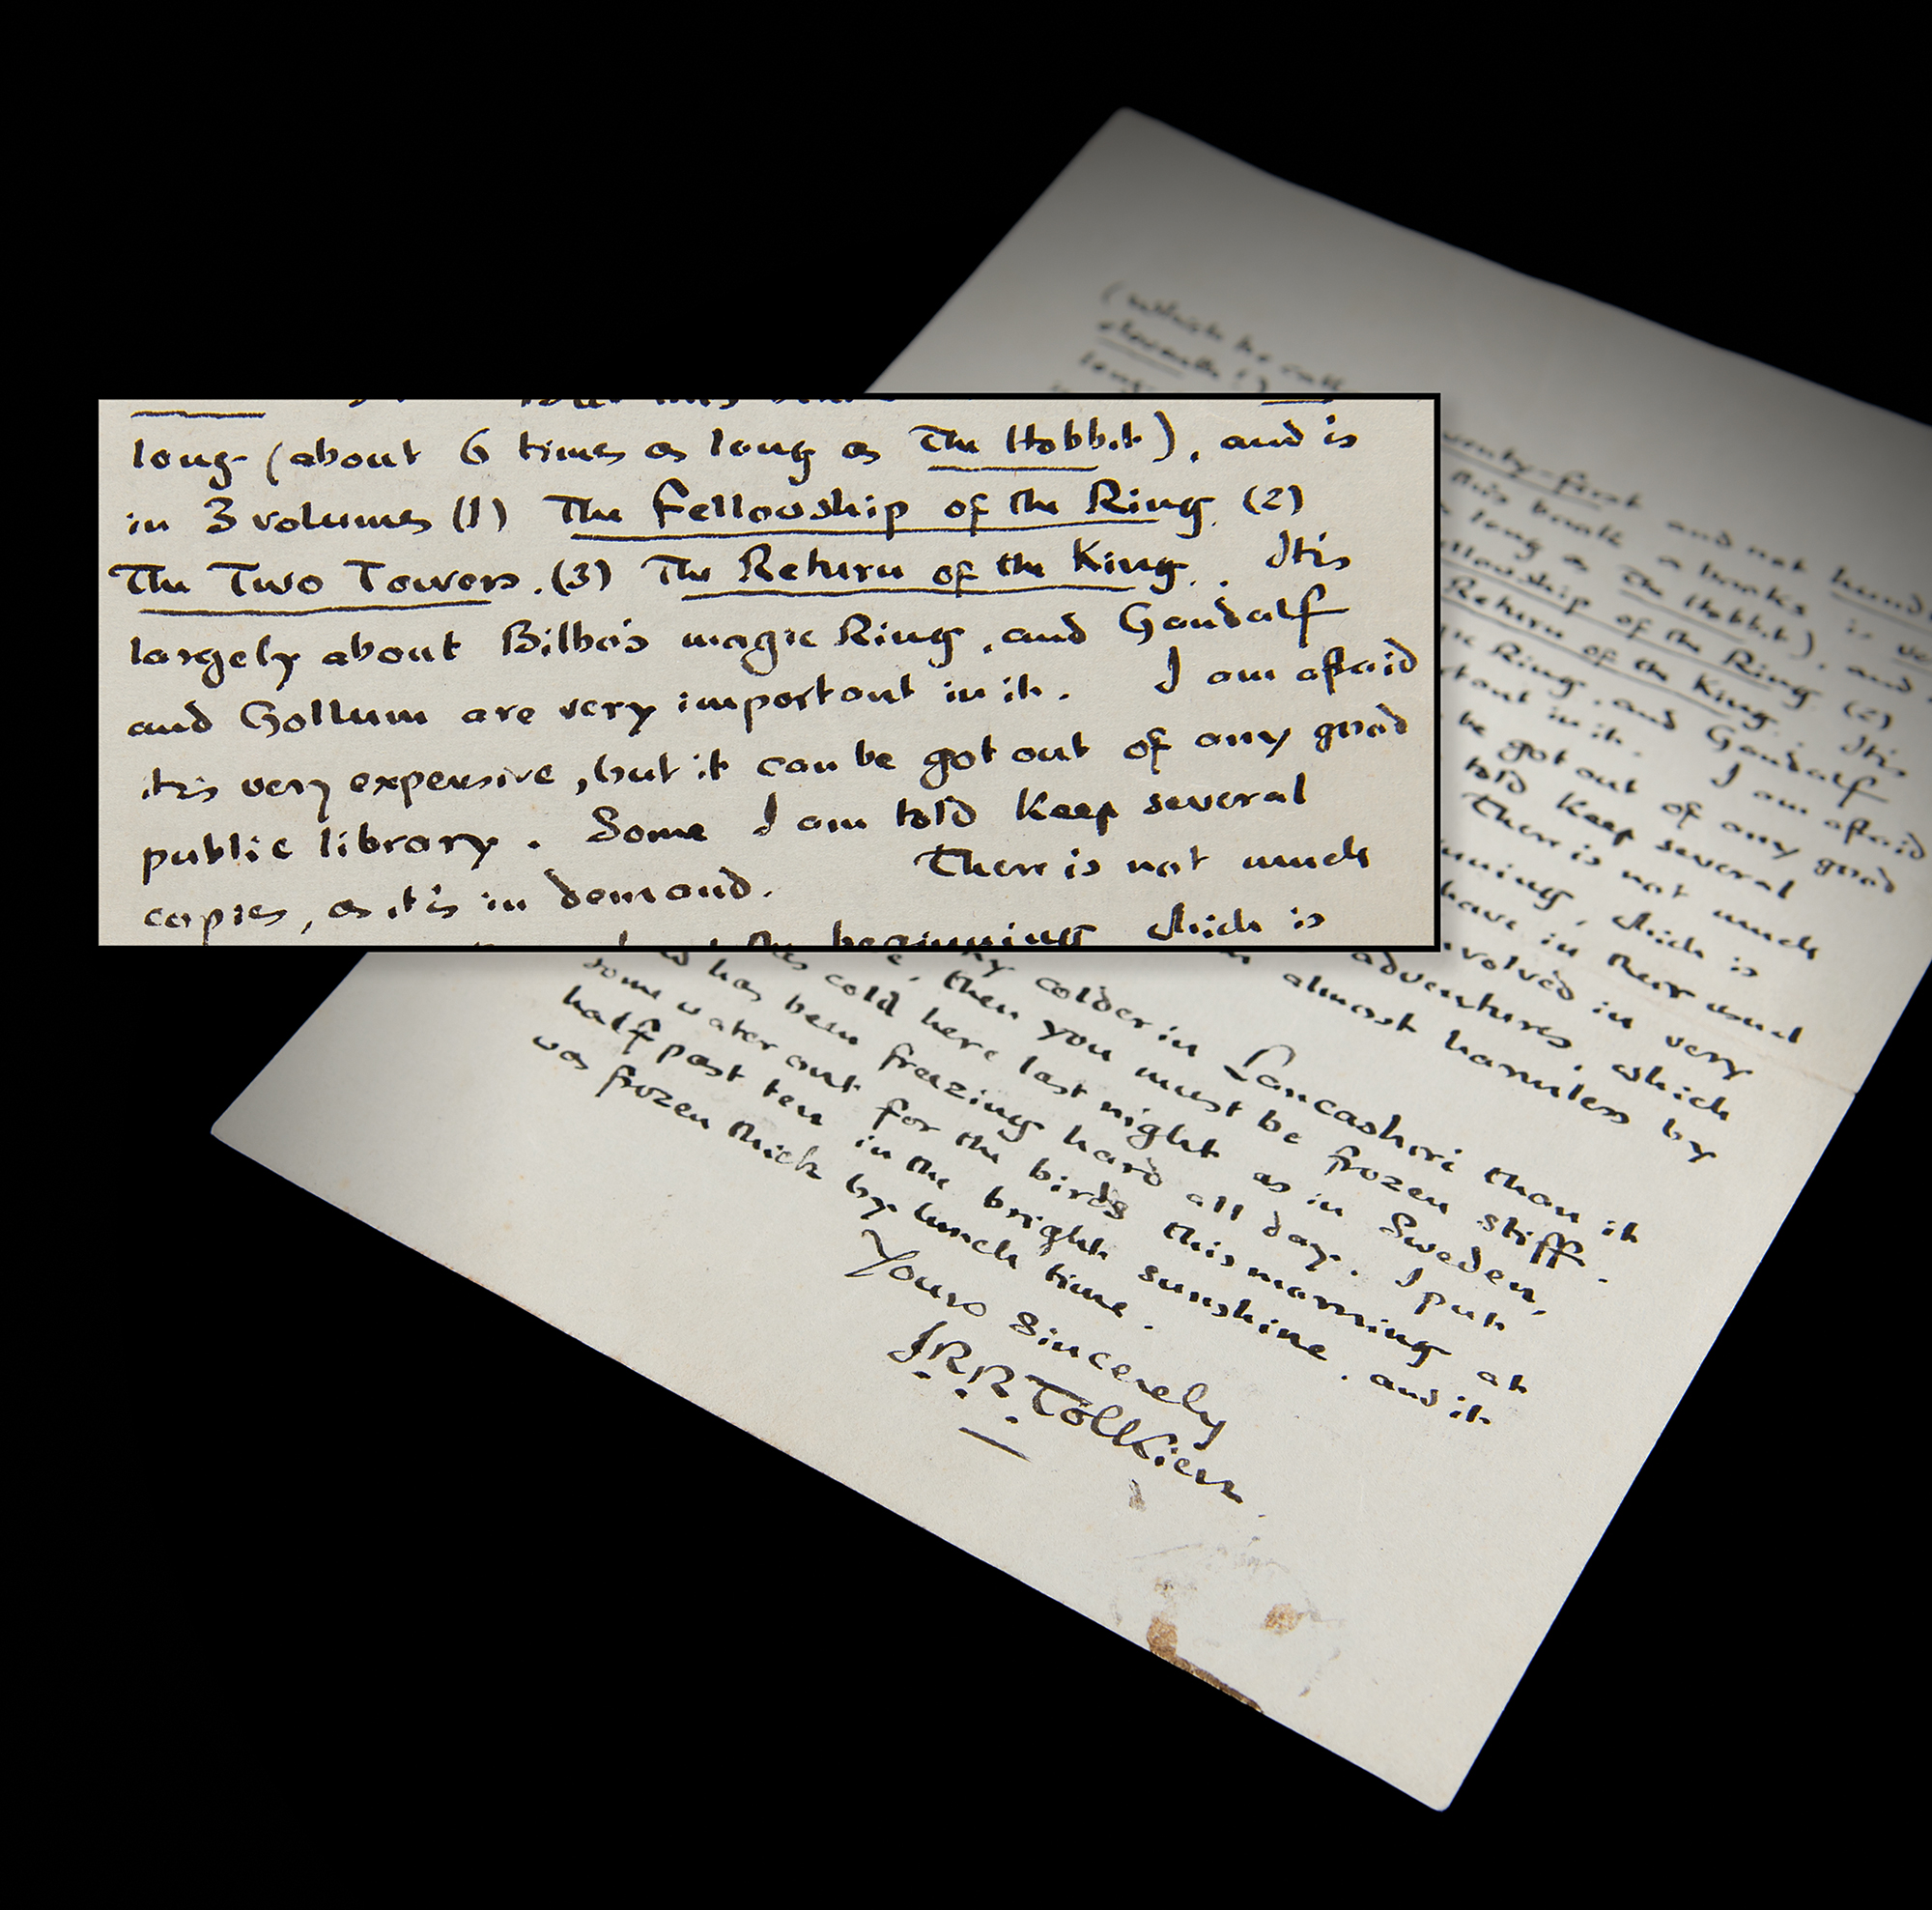 long (about 6 times as long as The Hobbit), and is
in 3 volumes (1) The Fellowship of the Ring, (2)
The Two Towers, (3) The Return of the King. It is
largely about Bilbo's magic Ring, and Gandalf
and Gollum are very important in it. I am afraid
it is very expensive, but it can be got out of any good
public library. Some I am told keep several
copies, as it is in demand. There is not much
beginning which is
(which he
long
twenty-first and not
this book
long as The Hobbit), and
Fellowship of the Ring, (2)
Return of the King. It is
Ring, and Gandalf
in it. I am afraid
be got out of any good
told keep several
There is not much
which is
have in their usual
volved in very
adventures, which
almost harmless by
colder in Lancashire than it
here, then you must be frozen stiff.
cold here last night as in Sweden,
and has been freezing hard all day. I put
some water out for the birds this morning at
half past ten in the bright sunshine, and it
was frozen thick by lunch time.
Yours sincerely
J.R.R. Tolkien.